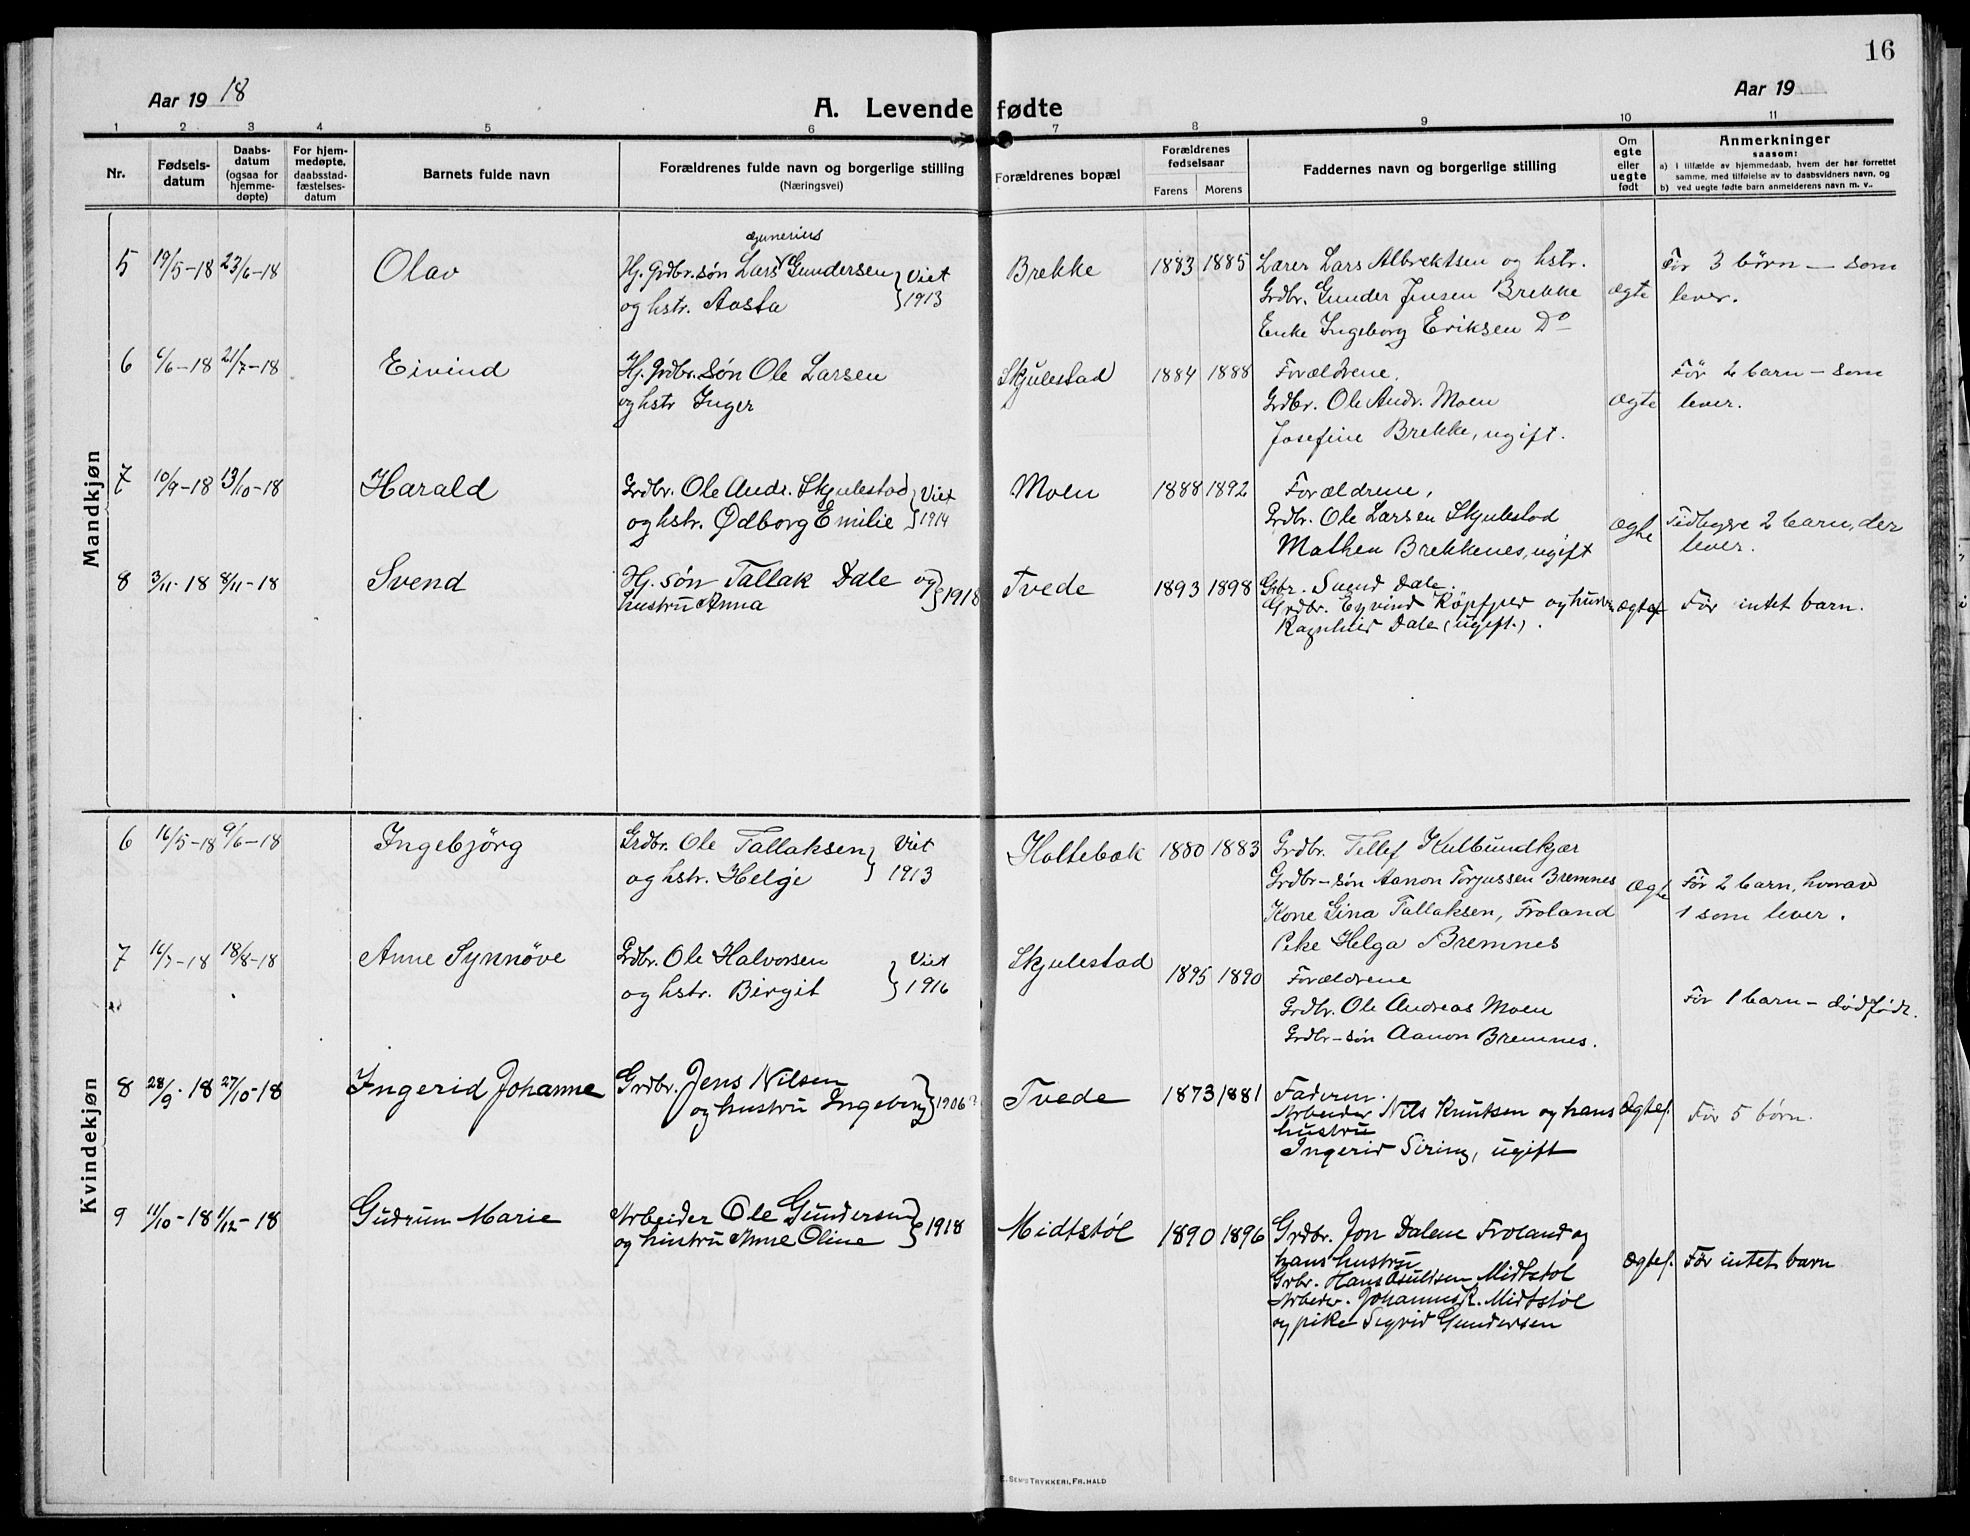 16
Aar 1918
A. Levende fødte
Aar 19
1 2 3 4 5 6 7 8 9 10 11
Nr.
Fødsels-
datum
Daabs-
datum
(ogsaa for
hjemme-
døpte)
For hjem-
medøpte,
daabsstad-
fæstelses-
datum
Barnets fulde navn
Forældrenes fulde navn og borgerlige stilling
(Næringsvei)
Forældrenes bopæl
Forældrenes
fødselsaar
Farens Morens
Faddernes navn og borgerlige stilling
Om
egte
eller
uegte
født
Anmerkninger
saasom:
a) I tilfælde av hjemmedaab, hvem der har forrettet
samme, med tilføielse av to daabsvidners navn, og
b) ved uegte fødte barn anmelderens navn m. v..
Mandkjøn
5 19/5-18 23/6-18 Olav
Hj. Grdbr. søn Lars Gundersen
og hstr. Aasta
Viet
1913
Brekke 1883 1885
Lærer Lars Albrektsen og hstr.
Grdbr. Gunder Jensen Brekke
Enke Ingeborg Eriksen Do
Ægte
Før 3 børn – som
lever.
6 6/6-18 21/7-18 Eivind
Hj. Grdbr. søn Ole Larsen
og hstr Inger
Skjulestad 1884 1888
Forældrene.
Grdbr. Ole Andr. Moen
Josefine Brekke, ugift.
Ægte
Før 2 barn – som
lever.
7 10/9-18 13/10-18 Harald
Grdbr. Ole Andr. Skjulestad
og hstr. Ødborg Emilie
Viet
1914
Moen 1888 1892
Forældrene,
Grdbr. Ole Larsen Skjulestad
Mathea Brekkenes, ugift
Ægte
Tidligere 2 barn, der
lever.
8 3/11-18 8/11-18 Svend
Hj. søn Tallak Dale og
hustru Anna
1918
Tvede 1893 1898
Gbr. Svend Dale.
Grdbr. Eyvind og hustru
Ragnhild Dale (ugift.).
Ægtef
Før intet barn.
Kvindekjøn
6 16/5-18 9/6-18 Ingebjörg
Grdbr. Ole Tallaksen
og hstr. Helge
Viet
1913
Holtebæk 1880 1883
Grdbr. Tellef Kulbundkjær
Grdbr-søn Aanon Torjussen Bremnes
Kone Gina Tallaksen, Froland
Pike Helga Bremnes
Ægte
Før 2 barn, hvorav
1 som lever.
7 16/7-18 18/8-18 Anne Synnöve
Grdbr. Ole Halvorsen
og hstr. Birgit
Viet
1916
Skjulestad 1895 1890
Forældrene
Grdbr. Ole Andreas Moen
Grdbr-søn Aanon Bremnes.
Før 1 barn – dødfødt.
8 28/9-18 27/10-18 Ingerid Johanne
Grdbr. Jens Nilsen
og hustru Ingeborg
1906?
Tvede 1873 1881
Faderen.
Arbeider Nils Knutsen og hans
hustru
Ingerid Siring, ugift
Ægtef.
Før 5 børn.
9 11/10-18 1/12-18 Gudrun Marie
Arbeider Ole Gundersen
og hustru Anne Oline
1918
Midtstøl 1890 1896
Grdbr. Jon Dalene Froland og
hans hustru
Grbr. Hans Midtstøl
Arbeider. Johannes K. Midtstøl
og pike Sigrid Gundersen
Ægtef.
Før intet barn
E. SEM'S TRYKKERI, FR.HALD